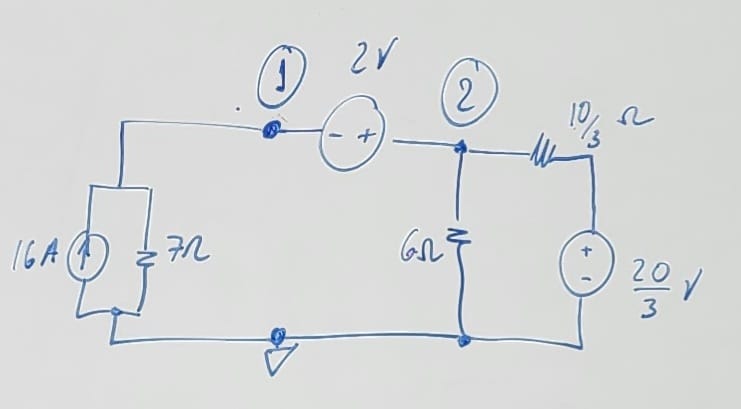 1
2V
2
10/3 Ω
- +
16A
7Ω
6Ω
+
-
20/3 V